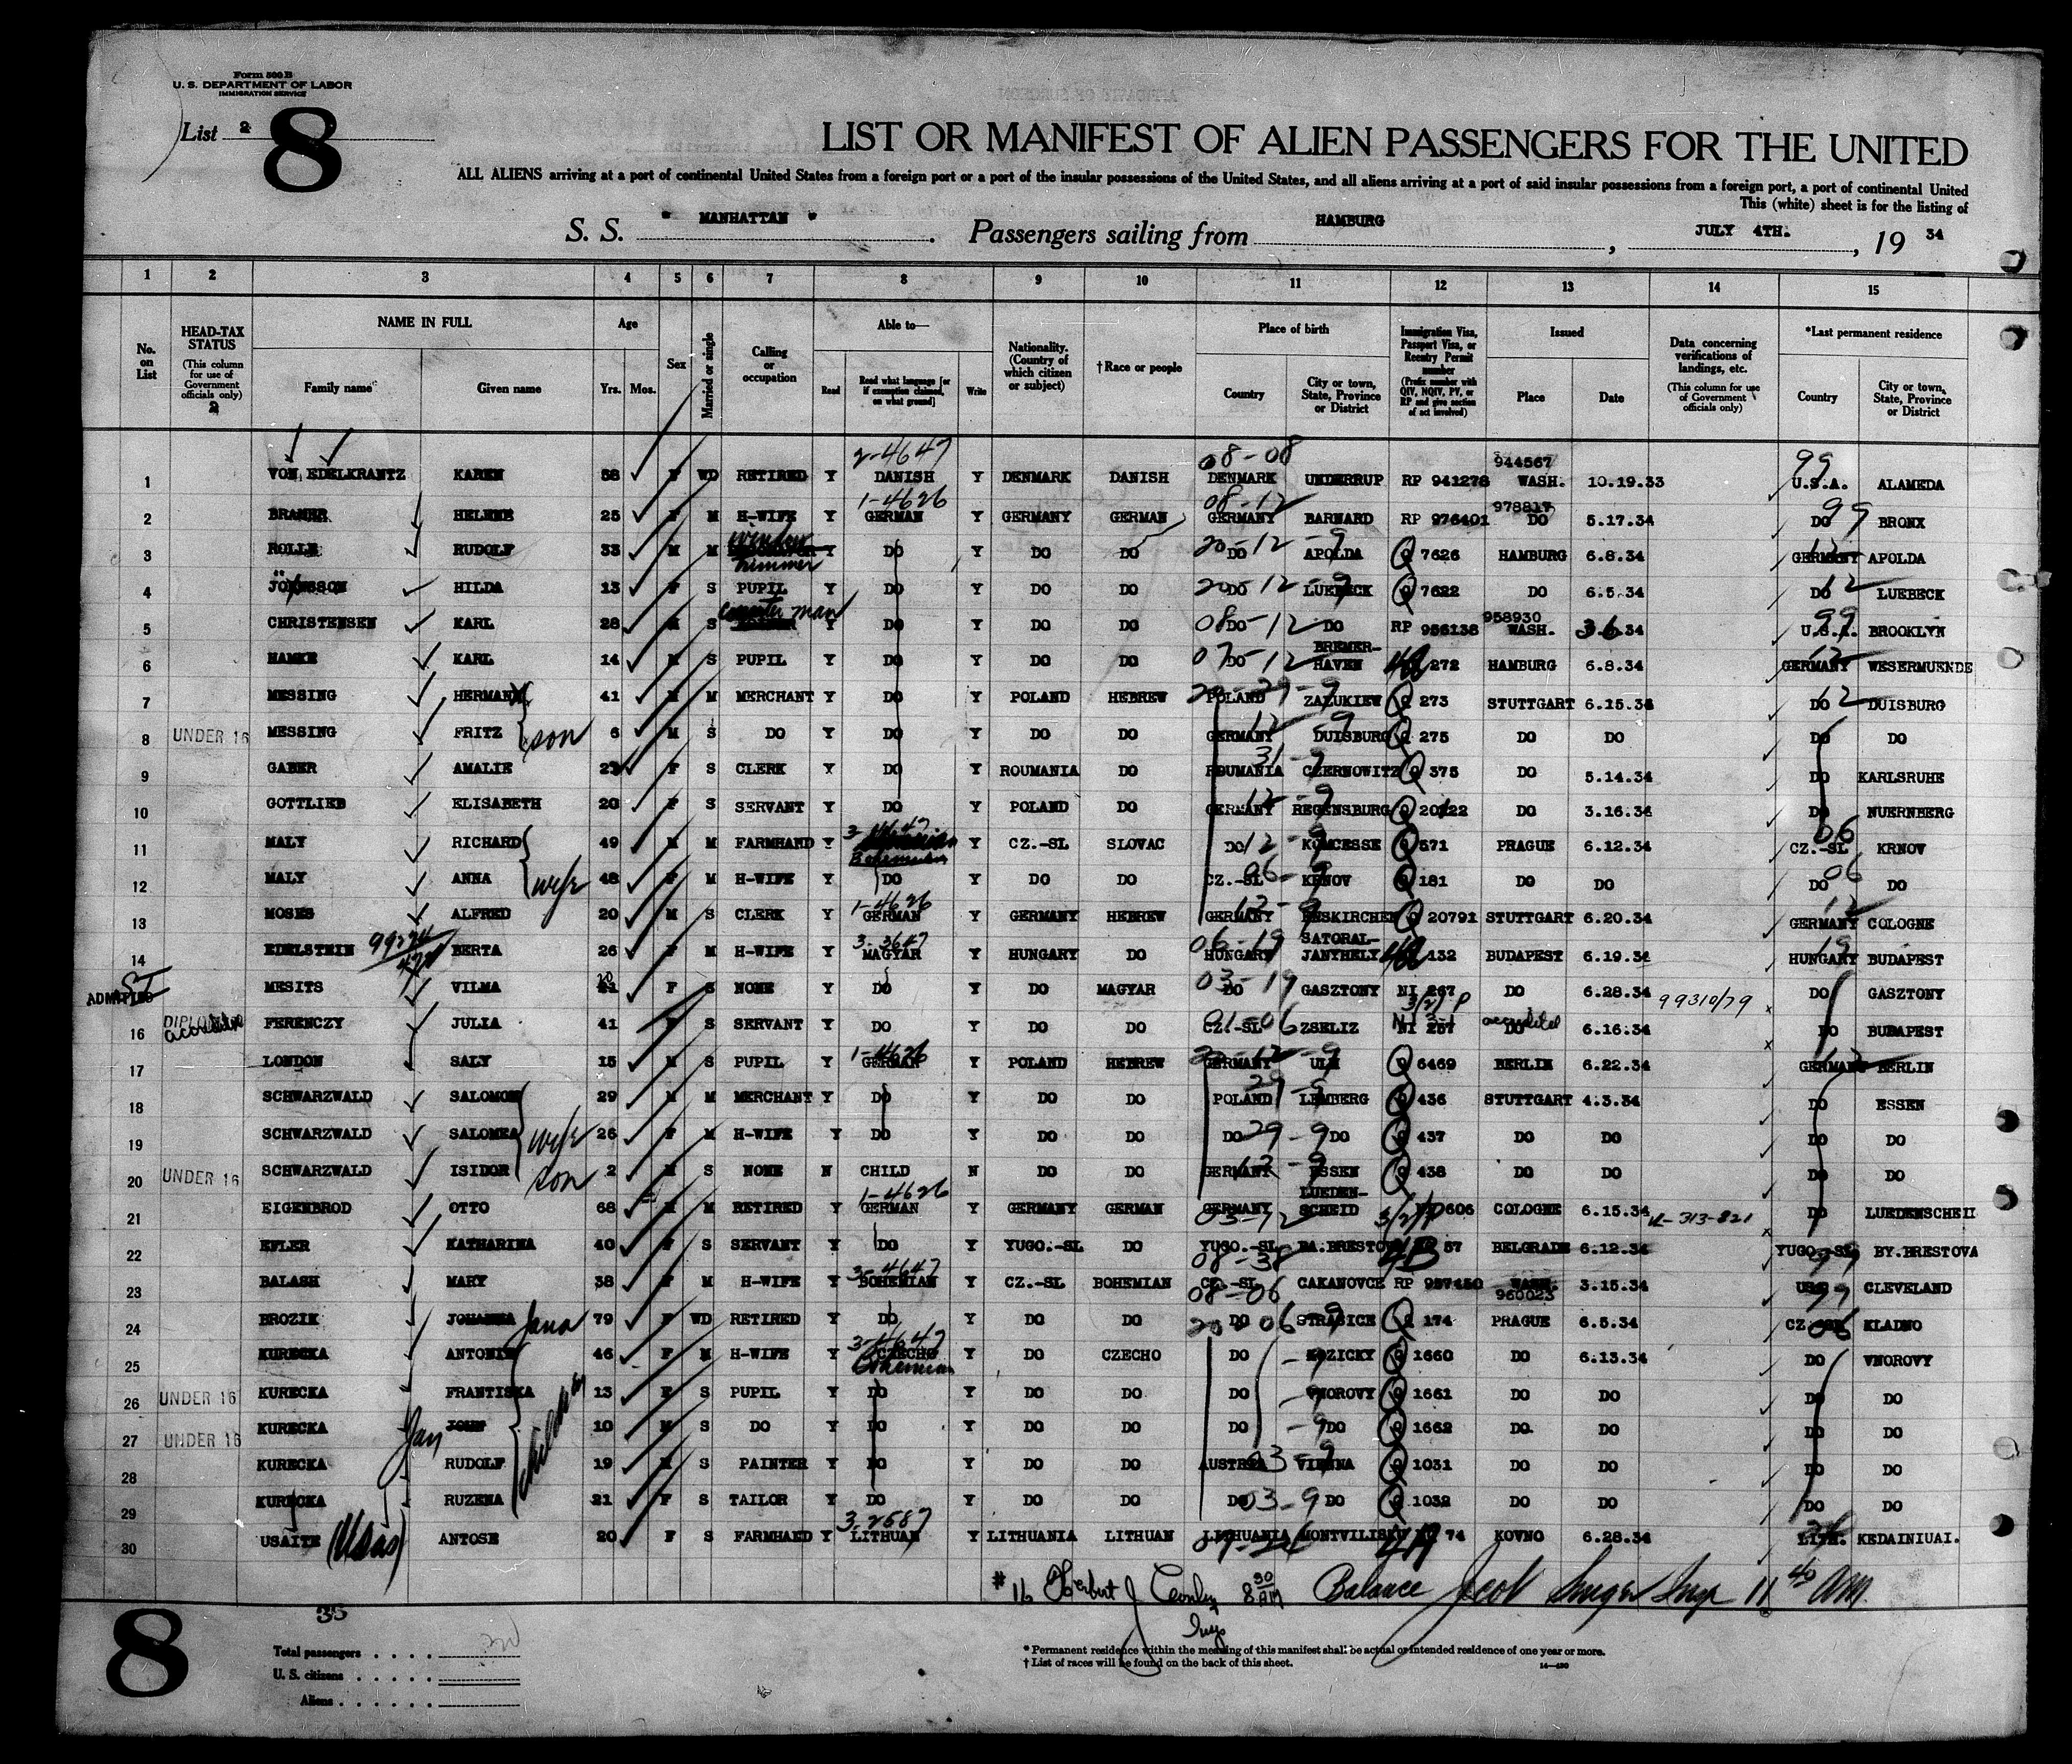 Form 500 B
U. S. DEPARTMENT OF LABOR
IMMIGRATION SERVICE
List 2
8
LIST OR MANIFEST OF ALIEN PASSENGERS FOR THE UNITED
ALL ALIENS arriving at a port of continental United States from a foreign port or a port of the insular possessions of the United States, and all aliens arriving at a port of said insular possessions from a foreign port, a port of continental United
This (white) sheet is for the listing of
S. S. " MANHATTAN " . Passengers sailing from HAMBURG , JULY 4TH. , 19 34
1 2 3 4 5 6 7 8 9 10 11 12 13 14 15
No. on List
HEAD-TAX STATUS (This column for use of Government officials only) 2
NAME IN FULL Family name Given name
Age Yrs. Mos.
Sex
Married or single
Calling or occupation
Able to— Read Read what language [or if exemption claimed, on what ground] Write
Nationality. (Country of which citizen or subject)
†Race or people
Place of birth Country City or town, State, Province or District
Immigration Visa, Passport Visa, or Reentry Permit number (Prefix number with QIV, NQIV, PV, or RP and give section of act involved)
Issued Place Date
Data concerning verifications of landings, etc. (This column for use of Government officials only)
*Last permanent residence Country City or town, State, Province or District
2-4647 08-08 944567 99
1 VON EDELKRANTZ KAREN 58 F WD RETIRED Y DANISH Y DENMARK DANISH DENMARK UNDERRUP RP 941278 WASH. 10.19.33 U.S.A. ALAMEDA
1-4626 08-12 978817 99
2 BRAMER HELENE 25 F M H-WIFE Y GERMAN Y GERMANY GERMAN GERMANY BARNARD RP 976401 DO 5.17.34 DO BRONX
3 ROLLE RUDOLF 33 M M window trimmer Y DO Y DO DO 20-12-9 DO APOLDA Q 7626 HAMBURG 6.8.34 GERMANY APOLDA
4 HILDA 13 F S PUPIL Y DO Y DO DO 20-12-9 DO LUEBECK Q 7622 DO 6.5.34 DO 12 LUEBECK
5 CHRISTENSEN KARL 28 M S counter man Y DO Y DO DO 08-12 DO DO RP 956138 958930 WASH. 3.6.34 99 U.S.A. BROOKLYN
6 HAMKE KARL 14 M S PUPIL Y DO Y DO DO DO BREMER-HAVEN 272 HAMBURG 6.8.34 GERMANY WESERMUENDE
7 MESSING HERMANN 41 M M MERCHANT Y DO Y POLAND HEBREW POLAND ZAZUKIEW Q 273 STUTTGART 6.15.34 DO 12 DUISBURG
8 UNDER 16 MESSING FRITZ son 6 M S DO Y DO Y DO DO GERMANY DUISBURG Q 275 DO DO DO DO
9 GABER AMALIE 23 F S CLERK Y DO Y ROUMANIA DO ROUMANIA CZERNOWITZ Q 375 DO 5.14.34 DO KARLSRUHE
10 GOTTLIEB ELISABETH 20 F S SERVANT Y DO Y POLAND DO GERMANY REGENSBURG Q 20122 DO 3.16.34 DO NUERNBERG
11 MALY RICHARD 49 M M FARMHAND Y Bohemian Y CZ.-SL SLOVAC DO 12-9 KOMCESSE Q 571 PRAGUE 6.12.34 06 CZ.-SL KRNOV
12 MALY ANNA wife 48 F M H-WIFE Y DO Y DO DO CZ.-SL 06-9 KRNOV Q 181 DO DO DO 06 DO
13 MOSES ALFRED 20 M S CLERK Y 1-4626 GERMAN Y GERMANY HEBREW GERMANY 12-9 Q 20791 STUTTGART 6.20.34 GERMANY COLOGNE
14 EDELSTEIN BERTA 26 F M H-WIFE Y 3-3647 MAGYAR Y HUNGARY DO 06-19 HUNGARY SATORAL-JANYHELY 132 BUDAPEST 6.19.34 19 HUNGARY BUDAPEST
ADMITTED MESITS VILMA F S NONE Y DO Y DO MAGYAR 03-19 DO GASZTONY NI 267 DO 6.28.34 99310/79 DO GASZTONY
16 FERENCZY JULIA 41 F S SERVANT Y DO Y DO DO CZ.-SL ZSELIZ NI 257 DO 6.16.34 DO BUDAPEST
17 LONDON SALY 15 M S PUPIL Y 1-4626 GERMAN Y POLAND HEBREW GERMANY ULM Q 6469 BERLIN 6.22.34 GERMANY BERLIN
18 SCHWARZWALD SALOMON 29 M M MERCHANT Y DO Y DO DO POLAND 29-9 LEMBERG Q 436 STUTTGART 4.3.34 DO ESSEN
19 SCHWARZWALD SALOMEA wife 26 F M H-WIFE Y DO Y DO DO DO 29-9 DO Q 437 DO DO DO DO
20 UNDER 16 SCHWARZWALD ISIDOR son 2 M S NONE N CHILD N DO DO GERMANY 12-9 ESSEN Q 438 DO DO DO DO
21 EIGENBROD OTTO 68 M M RETIRED Y 1-4626 GERMAN Y GERMANY GERMAN GERMANY LUEDEN-SCHEID 606 COLOGNE 6.15.34 DO LUEDENSCHEID
22 EFLER KATHARINA 40 F S SERVANT Y DO Y YUGO.-SL DO 03-12 YUGO.-SL BA.BRESTOV 57 BELGRADE 6.12.34 YUGO.-SL BY.BRESTOVA
23 BALASH MARY 38 F M H-WIFE Y 3-4647 BOHEMIAN Y CZ.-SL BOHEMIAN 08-38 CZ.-SL CAKANOVCE RP 957450 WASH. 960023 3.15.34 CLEVELAND
24 BROZIK JOHANNA Jana 79 F WD RETIRED Y DO Y DO DO 08-06 DO STRASICE Q 174 PRAGUE 6.5.34 CZ.-SL KLADNO
25 KURECKA ANTONIE 46 F M H-WIFE Y 3-4647 CZECHO Bohemian Y DO CZECHO DO KOZICKY Q 1660 DO 6.13.34 DO VNOROVY
26 UNDER 16 KURECKA FRANTISKA 13 F S PUPIL Y DO Y DO DO DO VNOROVY Q 1661 DO DO DO DO
27 UNDER 16 KURECKA Jan JOHN children 10 M S DO Y DO Y DO DO DO DO Q 1662 DO. DO DO DO
28 KURECKA RUDOLF 19 M S PAINTER Y DO Y DO DO AUSTRIA 03-9 VIENNA Q 1031 DO DO DO DO
29 KURECKA RUZENA 21 F S TAILOR Y DO Y DO DO DO 03-9 DO Q 1032 DO DO DO DO
30 USAITE (Usas) ANTOSE 20 F S FARMHAND Y 3-2587 LITHUAN Y LITHUANIA LITHUAN LITHUANIA MONTVILISKY 74 KOVNO 6.28.34 LITH. KEDAINIUAI.
# 16 Herbert J 8 30 AM Balance Insp 11 40 AM
8
35
Total passengers . . . .
U. S. citizens . . . . . .
Aliens . . . . . .
* Permanent residence within the meaning of this manifest shall be actual or intended residence of one year or more.
† List of races will be found on the back of this sheet.
14—430